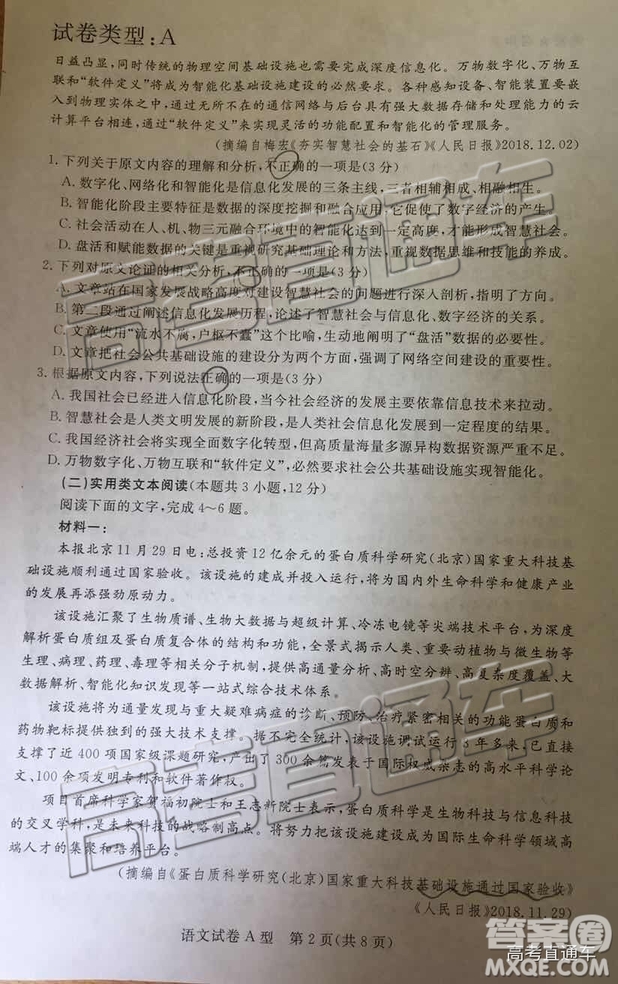 试卷类型：A
日益凸显，同时传统的物理空间基础设施也需要完成深度信息化。万物数字化、万物互
联和“软件定义”将成为智能化基础设施建设的必然要求。各种感知设备、智能装置要嵌
入到物理实体之中，通过无所不在的通信网络与后台具有强大数据存储和处理能力的云
计算平台相连，通过“软件定义”来实现灵活的功能配置和智能化的管理服务。
（摘编自梅宏《夯实智慧社会的基石》《人民日报》2018.12.02）
1. 下列关于原文内容的理解和分析，不正确的一项是(3分)
A. 数字化、网络化和智能化是信息化发展的三条主线，三者相辅相成、相融相生。
B. 智能化阶段主要特征是数据的深度挖掘和融合应用，它促使了数字经济的产生。
C. 社会活动在人、机、物三元融合环境中的智能化程度达到一定高度，才能形成智慧社会。
D. 盘活和赋能数据的关键是重视研究基础理论和方法，重视数据思维和技能的养成。
2. 下列对原文论证的相关分析，不正确的一项是(3分)
A. 文章站在国家发展战略高度对建设智慧社会的问题进行深入剖析，指明了方向。
B. 第二段通过阐述信息化发展历程，论述了智慧社会与信息化、数字经济的关系。
C. 文章使用“流水不腐，户枢不蠹”这个比喻，生动地阐明了“盘活”数据的必要性。
D. 文章把社会公共基础设施的建设分为两个方面，强调了网络空间建设的重要性。
3. 根据原文内容，下列说法正确的一项是(3分)
A. 我国社会已经进入信息化阶段，当今社会经济的发展主要依靠信息技术来拉动。
B. 智慧社会是人类文明发展的新阶段，是人类社会信息化发展到一定程度的结果。
C. 我国经济社会将实现全面数字化转型，但高质量海量多源异构数据资源严重不足。
D. 万物数字化、万物互联和“软件定义”，必然要求社会公共基础设施实现智能化。
(二)实用类文本阅读(本题共3小题，12分)
阅读下面的文字，完成4～6题。
材料一：
本报北京11月29日电：总投资12亿余元的蛋白质科学研究(北京)国家重大科技基
础设施顺利通过国家验收。该设施的建成并投入运行，将为国内外生命科学和健康产业
的发展再添强劲原动力。
该设施汇聚了生物质谱、生物大数据与超级计算、冷冻电镜等尖端技术平台，为深度
解析蛋白质组及蛋白质复合体的结构和功能，全景式揭示人类、重要动植物与微生物等
生理、病理、药理、毒理等相关分子机制，提供高通量分析、高时空分辨、高复杂度覆盖、大
数据解析、智能化知识发现等一站式综合技术体系。
该设施将为通量发现与重大疑难病症的诊断、预防、治疗紧密相关的功能蛋白质和
药物靶标提供强大技术支撑。据不完全统计，该设施调试运行3年多来，已直接
支撑了近400项国家级课题研究，产出了300余篇发表于国际权威杂志的高水平科学论
文、100余项发明专利和软件著作权。
项目首席科学家贺福初院士和王志新院士表示，蛋白质科学是生物科技与信息科技
的交叉学科，是未来科技的战略制高点。将努力把该设施建设成为国际生命科学领域高
端人才的集聚和培养平台。
（摘编自《蛋白质科学研究(北京)国家重大科技基础设施通过国家验收》
《人民日报》2018.11.29）
语文试卷A型 第2页(共8页)
高考直通车
高考直通车
高考直通车
答案圈
MXQE.COM
高考直通车